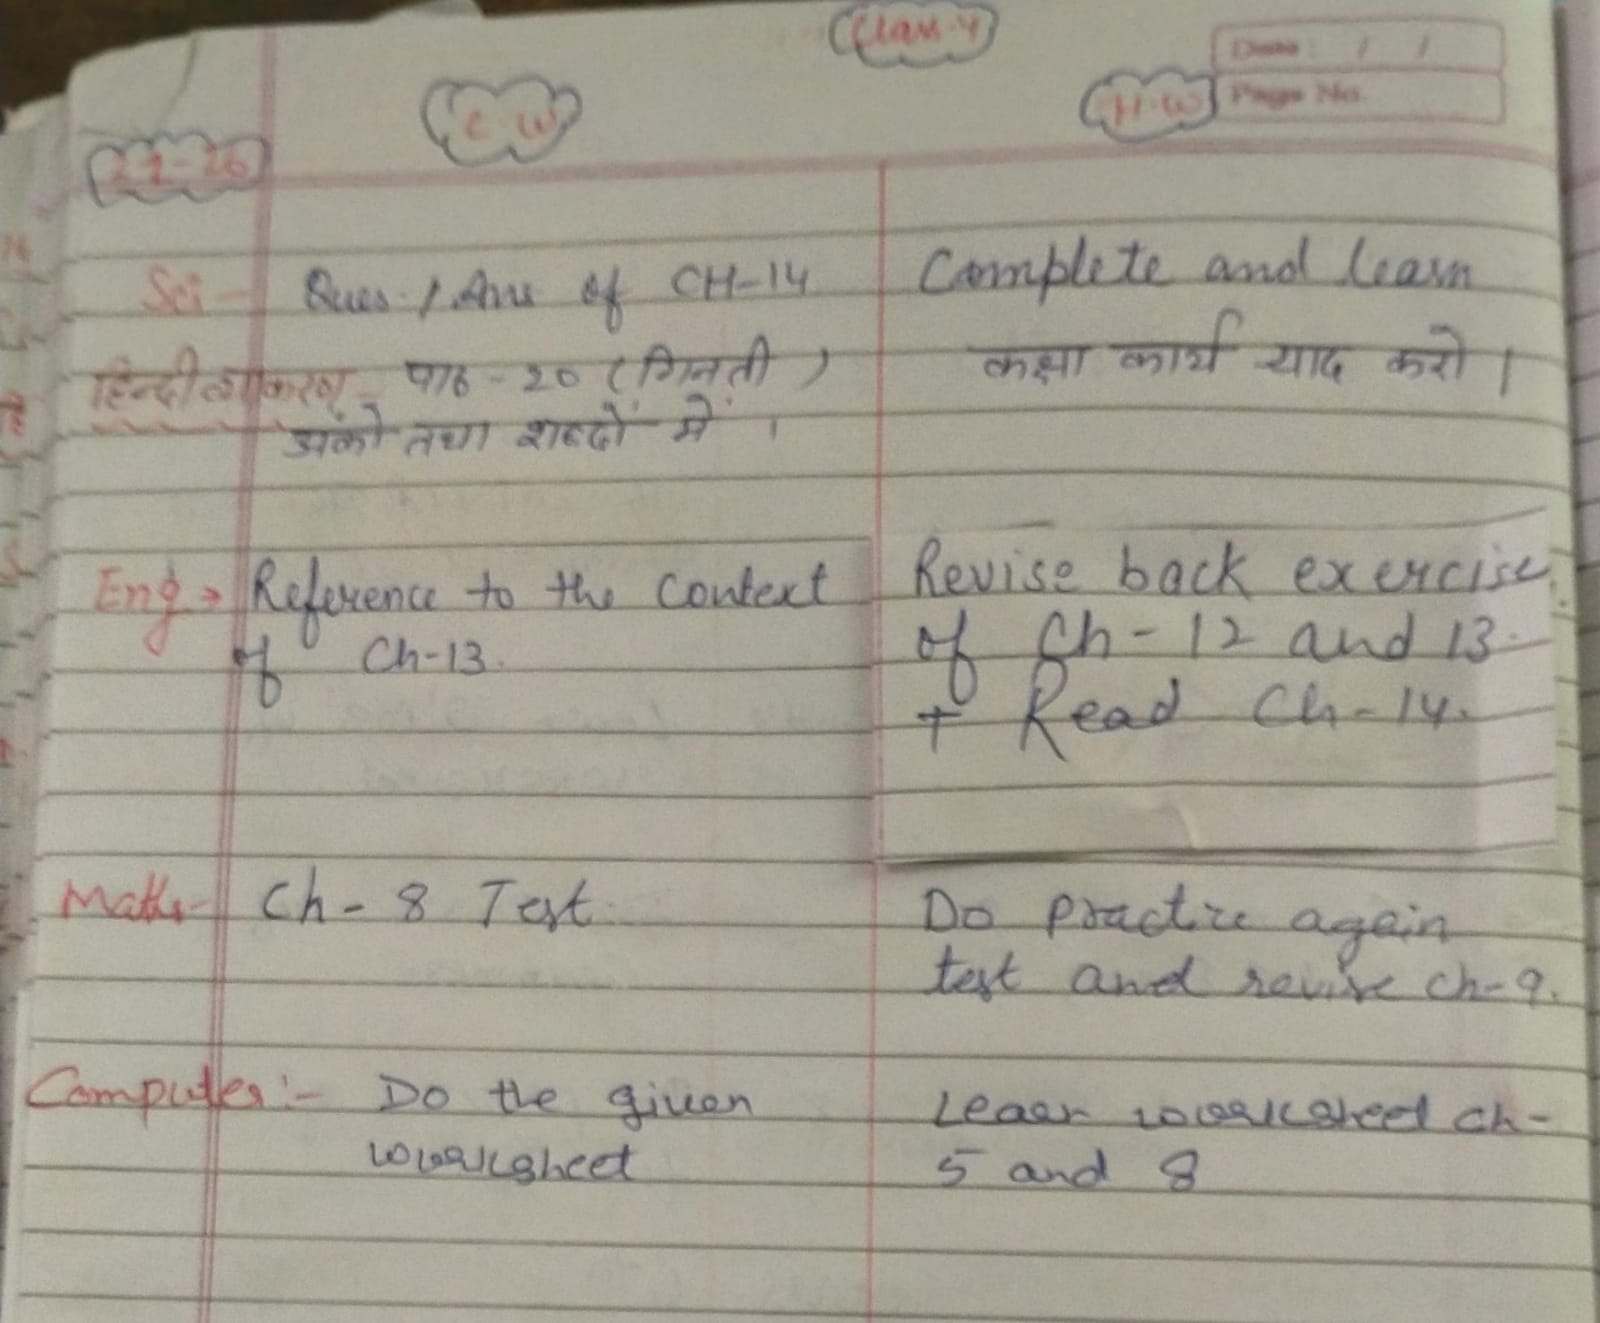 Class-4
C.W
H.W
Date : / /
Page No.
Sci - Ques. / Ans of CH-14
Complete and learn
हिन्दी व्याकरण - पाठ - 20 (गिनती)
अंको तथा शब्दों में ।
कक्षा कार्य याद करो ।
Eng → Reference to the context
of Ch-13.
Revise back exercise
of Ch - 12 and 13.
+ Read Ch - 14.
Maths - Ch - 8 Test
Do practice again
test and revise ch-9.
Computer :- Do the given
worksheet
Learn worksheet ch-
5 and 8